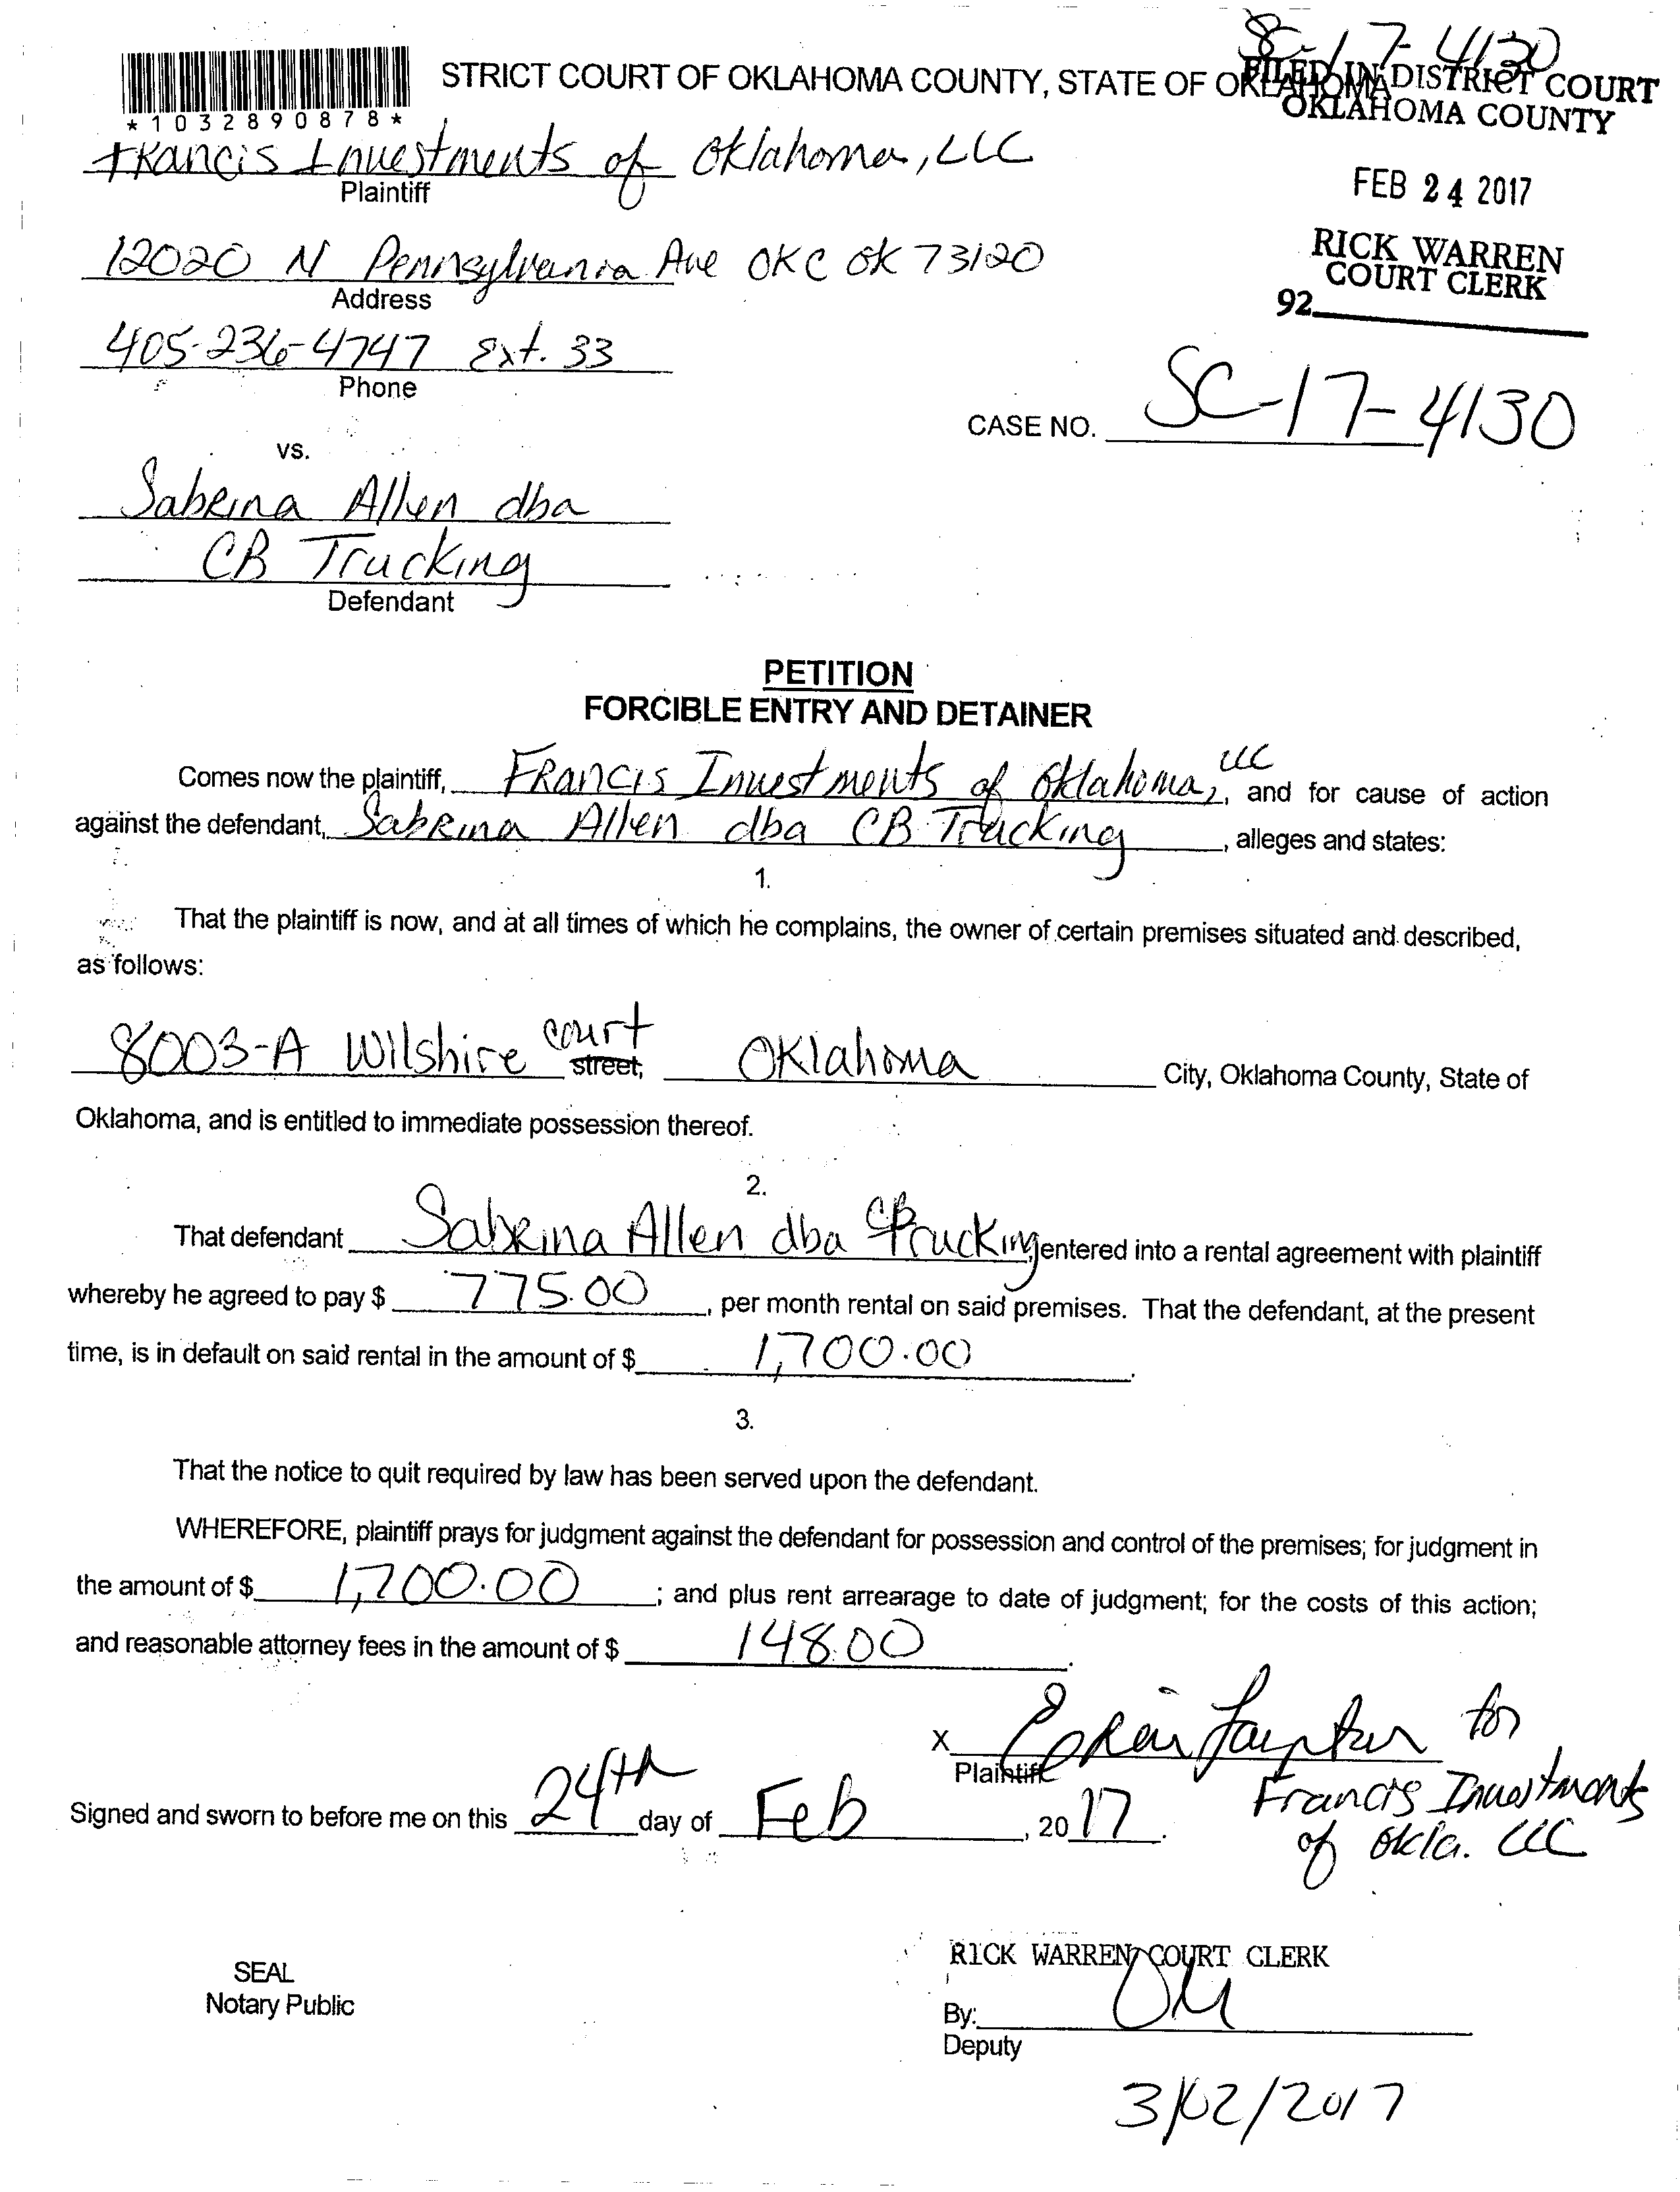 SC-17-4130
STRICT COURT OF OKLAHOMA COUNTY, STATE OF OKLAHOMA
FILED IN DISTRICT COURT
OKLAHOMA COUNTY
*1032890878*
Francis Investments of Oklahoma, LLC
Plaintiff
FEB 24 2017
12020 N Pennsylvania Ave OKC OK 73120
Address
RICK WARREN
COURT CLERK
92
405-236-4747 Ext. 33
Phone
CASE NO. SC-17-4130
vs.
Sabrina Allen dba
CB Trucking
Defendant
PETITION
FORCIBLE ENTRY AND DETAINER
Comes now the plaintiff, Francis Investments of Oklahoma, LLC, and for cause of action
against the defendant, Sabrina Allen dba CB Trucking, alleges and states:
1.
That the plaintiff is now, and at all times of which he complains, the owner of certain premises situated and described,
as follows:
8003-A Wilshire court street, Oklahoma City, Oklahoma County, State of
Oklahoma, and is entitled to immediate possession thereof.
2.
That defendant Sabrina Allen dba CB Trucking entered into a rental agreement with plaintiff
whereby he agreed to pay $ 775.00, per month rental on said premises. That the defendant, at the present
time, is in default on said rental in the amount of $ 1,700.00.
3.
That the notice to quit required by law has been served upon the defendant.
WHEREFORE, plaintiff prays for judgment against the defendant for possession and control of the premises; for judgment in
the amount of $ 1,700.00; and plus rent arrearage to date of judgment; for the costs of this action;
and reasonable attorney fees in the amount of $ 148.00.
X for
Plaintiff
Francis Investments
of Okla. LLC
Signed and sworn to before me on this 24th day of Feb, 2017.
RICK WARREN COURT CLERK
SEAL
Notary Public
By:
Deputy
3/02/2017